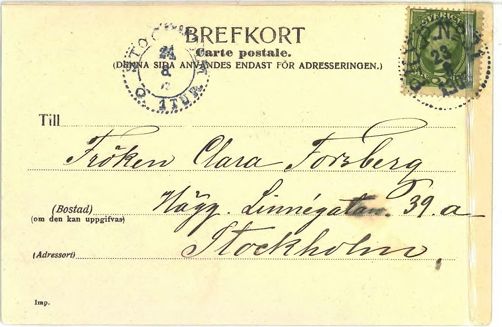 BREFKORT
Carte postale.
(DENNA SIDA ANVÄNDES ENDAST FÖR ADRESSERINGEN.)
SVERIGE
24
8
1 TUR
23
Till
Fröken Clara Forsberg
(Bostad)
(om den kan uppgifvas)
Hägg. Linnégatan. 39. a
(Adressort)
Stockholm.
Imp.